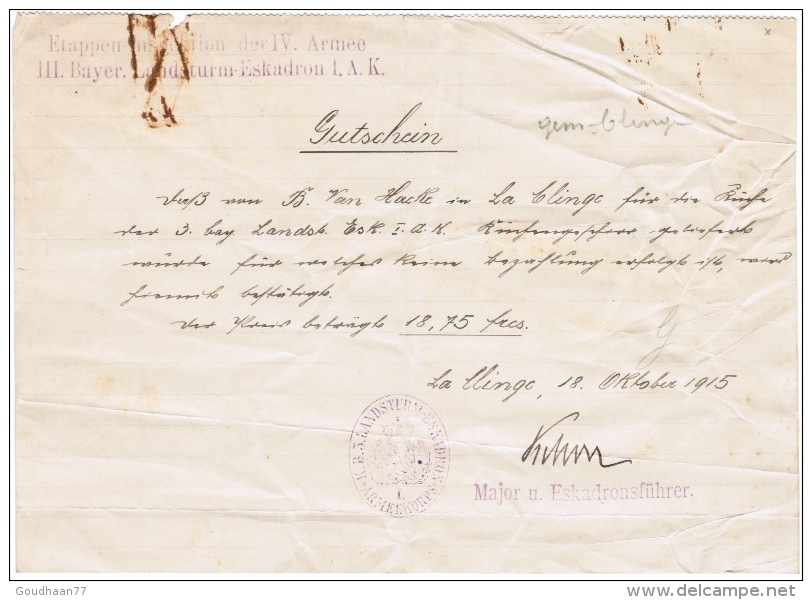 Etappen-Inspektion der IV. Armee
III. Bayer. Landsturm-Eskadron I. A. K.
gem. Clinge
Gutschein
Daß von B. Van Hacke in La Clinge für die Küche
der 3. bay. Landst. Esk. I. A. K. Küchengeschirr geliefert
wurde für welches keine Bezahlung erfolgt ist, wird
hiemit bestätigt.
Der Preis beträgt 18,75 frcs.
La Clinge, 18. Oktober 1915
K. B. 3. LANDSTURM-ESKADRON
I. ARMEEKORPS
Major u. Eskadronsführer.
Goudhaan77
delcampe.net